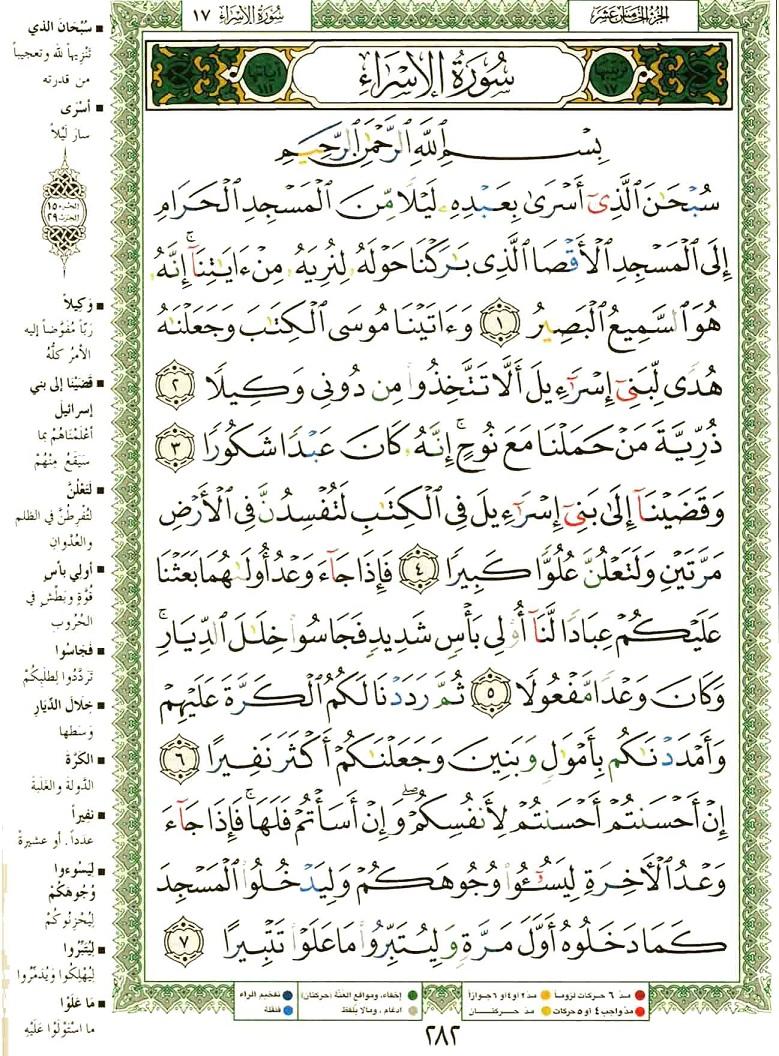 الجزء الخامس عشر
سورة الإسراء ١٧
ترتيبها ١٧
سُورَةُ الإِسْرَاءِ
آياتها ١١١
بِسْمِ ٱللَّهِ ٱلرَّحْمَٰنِ ٱلرَّحِيمِ
سُبْحَٰنَ ٱلَّذِىٓ أَسْرَىٰ بِعَبْدِهِۦ لَيْلًا مِّنَ ٱلْمَسْجِدِ ٱلْحَرَامِ
إِلَى ٱلْمَسْجِدِ ٱلْأَقْصَا ٱلَّذِى بَٰرَكْنَا حَوْلَهُۥ لِنُرِيَهُۥ مِنْ ءَايَٰتِنَآ ۚ إِنَّهُۥ
هُوَ ٱلسَّمِيعُ ٱلْبَصِيرُ ١ وَءَاتَيْنَا مُوسَى ٱلْكِتَٰبَ وَجَعَلْنَٰهُ
هُدًى لِّبَنِىٓ إِسْرَٰٓءِيلَ أَلَّا تَتَّخِذُوا۟ مِن دُونِى وَكِيلًا ٢
ذُرِّيَّةَ مَنْ حَمَلْنَا مَعَ نُوحٍ ۚ إِنَّهُۥ كَانَ عَبْدًا شَكُورًا ٣
وَقَضَيْنَآ إِلَىٰ بَنِىٓ إِسْرَٰٓءِيلَ فِى ٱلْكِتَٰبِ لَتُفْسِدُنَّ فِى ٱلْأَرْضِ
مَرَّتَيْنِ وَلَتَعْلُنَّ عُلُوًّا كَبِيرًا ٤ فَإِذَا جَآءَ وَعْدُ أُولَىٰهُمَا بَعَثْنَا
عَلَيْكُمْ عِبَادًا لَّنَآ أُو۟لِى بَأْسٍ شَدِيدٍ فَجَاسُوا۟ خِلَٰلَ ٱلدِّيَارِ ۚ
وَكَانَ وَعْدًا مَّفْعُولًا ٥ ثُمَّ رَدَدْنَا لَكُمُ ٱلْكَرَّةَ عَلَيْهِمْ
وَأَمْدَدْنَٰكُم بِأَمْوَٰلٍ وَبَنِينَ وَجَعَلْنَٰكُمْ أَكْثَرَ نَفِيرًا ٦
إِنْ أَحْسَنتُمْ أَحْسَنتُمْ لِأَنفُسِكُمْ ۖ وَإِنْ أَسَأْتُمْ فَلَهَا ۚ فَإِذَا جَآءَ
وَعْدُ ٱلْءَاخِرَةِ لِيَسُۥٓـُٔوا۟ وُجُوهَكُمْ وَلِيَدْخُلُوا۟ ٱلْمَسْجِدَ
كَمَا دَخَلُوهُ أَوَّلَ مَرَّةٍ وَلِيُتَبِّرُوا۟ مَا عَلَوْا۟ تَتْبِيرًا ٧
سُبْحَانَ الذي
تَنْزيهاً لله وتعجيباً
من قدرته
أسْرَى
سارَ لَيْلاً
وَكِيلاً
رَبّاً مُفَوَّضاً إليه
الأمرُ كلُّهُ
قَضَيْنا إلى بني
إسرائيل
أعْلَمْنَاهُمْ بما
سَيَقَعُ مِنْهُمْ
لَتَعْلُنَّ
لتُفْرِطُنَّ في الظلم
والعُدْوانِ
أولي بأسٍ
قُوَّةٍ وبَطْشٍ في
الحُرُوبِ
فَجَاسُوا
تَرَدَّدُوا لِطَلَبِكُمْ
خِلالَ الدِّيَارِ
وَسَطها
الكَرَّةَ
الدَّولَةَ والغَلَبَةَ
نَفيراً
عدداً. أو عشيرةً
لِيَسُوءوا
وُجُوهَكُمْ
لِيُحْزِنُوكُمْ
لِيُتَبِّرُوا
لِيُهْلِكُوا وَيُدَمِّرُوا
مَا عَلَوْا
ما استَوْلَوْا عَلَيْهِ
مدّ ٦ حركات لزوماً مدّ ٢ أو ٤ أو ٦ جوازاً إخفاء، ومواقع الغُنَّة (حركتان) تفخيم الراء
مدّ واجب ٤ أو ٥ حركات مدّ حركتان ادغام، وما لا يُلفظ قلقلة
٢٨٢